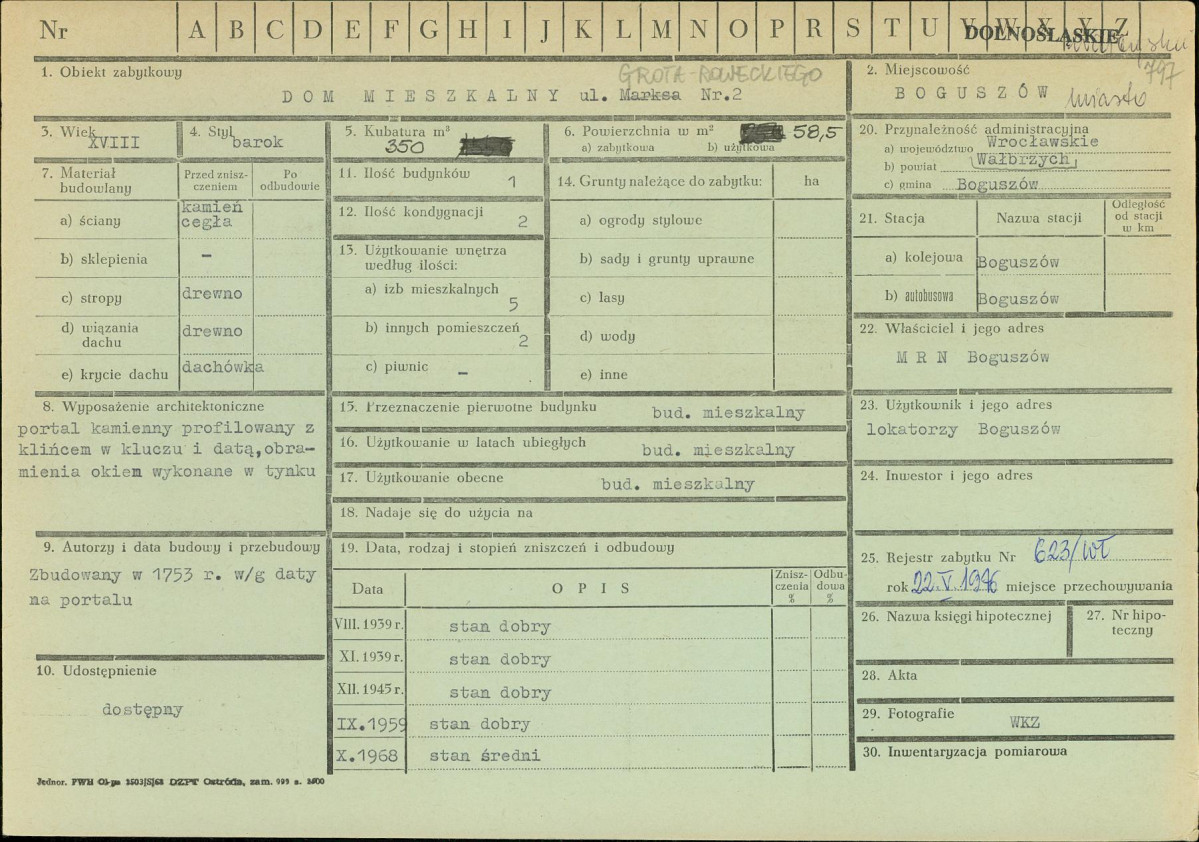 Nr A B C D E F G H I J K L M N O P R S T U V W X Y Z
DOLNOŚLĄSKIE
797
1. Obiekt zabytkowy
GROTA-ROWECKIEGO
DOM MIESZKALNY ul. Marksa Nr.2
2. Miejscowość
BOGUSZÓW miasto
3. Wiek
XVIII
4. Styl
barok
5. Kubatura m³
350
6. Powierzchnia w m²
58,5
a) zabytkowa b) użytkowa
20. Przynależność administracyjna
a) województwo Wrocławskie
b) powiat Wałbrzych
c) gmina Boguszów
7. Materiał budowlany
Przed zniszczeniem
Po odbudowie
a) ściany kamień
cegła
b) sklepienia -
c) stropy drewno
d) wiązania dachu drewno
e) krycie dachu dachówka
11. Ilość budynków 1
12. Ilość kondygnacji 2
13. Użytkowanie wnętrza
według ilości:
a) izb mieszkalnych 5
b) innych pomieszczeń 2
c) piwnic -
14. Grunty należące do zabytku: ha
a) ogrody stylowe
b) sady i grunty uprawne
c) lasy
d) wody
e) inne
21. Stacja Nazwa stacji Odległość od stacji w km
a) kolejowa Boguszów
b) autobusowa Boguszów
22. Właściciel i jego adres
MRN Boguszów
8. Wyposażenie architektoniczne
portal kamienny profilowany z
klińcem w kluczu i datą,obra-
mienia okiem wykonane w tynku
15. Przeznaczenie pierwotne budynku bud. mieszkalny
16. Użytkowanie w latach ubiegłych bud. mieszkalny
17. Użytkowanie obecne bud. mieszkalny
18. Nadaje się do użycia na
23. Użytkownik i jego adres
lokatorzy Boguszów
24. Inwestor i jego adres
9. Autorzy i data budowy i przebudowy
Zbudowany w 1753 r. w/g daty
na portalu
10. Udostępnienie
dostępny
19. Data, rodzaj i stopień zniszczeń i odbudowy
Data OPIS Zniszczenia % Odbudowa %
VIII. 1939 r. stan dobry
XI. 1939 r. stan dobry
XII. 1945 r. stan dobry
IX.1959 stan dobry
X.1968 stan średni
25. Rejestr zabytku Nr 623/wł
rok 22.V.1976 miejsce przechowywania
26. Nazwa księgi hipotecznej
27. Nr hipo-
teczny
28. Akta
29. Fotografie WKZ
30. Inwentaryzacja pomiarowa